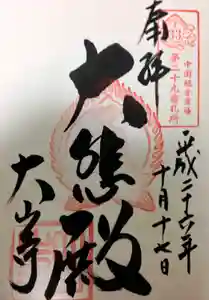 奉拝
33
中国観音霊場
第二十九番札所
平成二十六年
十月十七日
大悲殿
大山寺